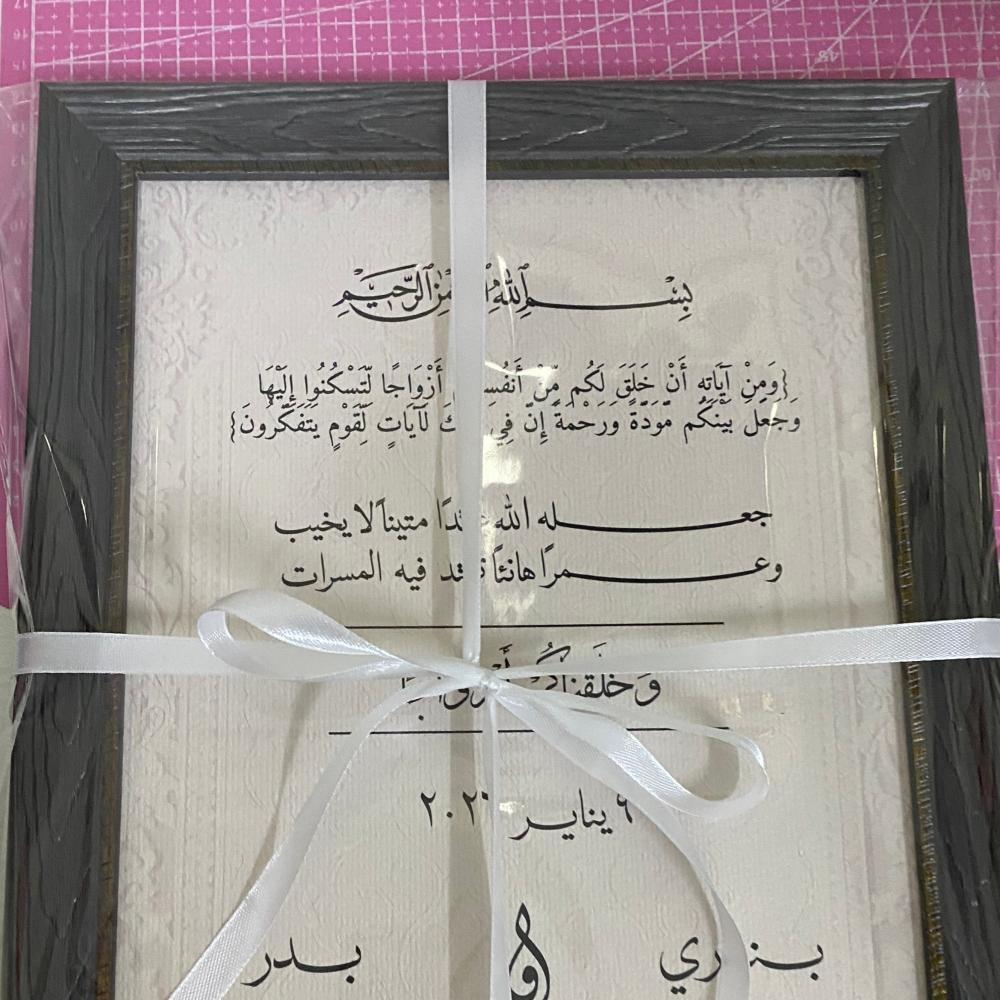 بِسْمِ اللَّهِ الرَّحِيمِ
{وَمِنْ آيَاتِهِ أَنْ خَلَقَ لَكُم مِّنْ أَزْوَاجًا لِّتَسْكُنُوا إِلَيْهَا
وَجَعَلَ بَيْنَكُم مَّوَدَّةً وَرَحْمَةً إِنَّ فِي لَآيَاتٍ لِّقَوْمٍ يَتَفَكَّرُونَ}
جعله الله متيناً لا يخيب
وعمراً هانئاً فيه المسرات
وَخَلَقْنَاكُمْ
٩ يناير
و بدر